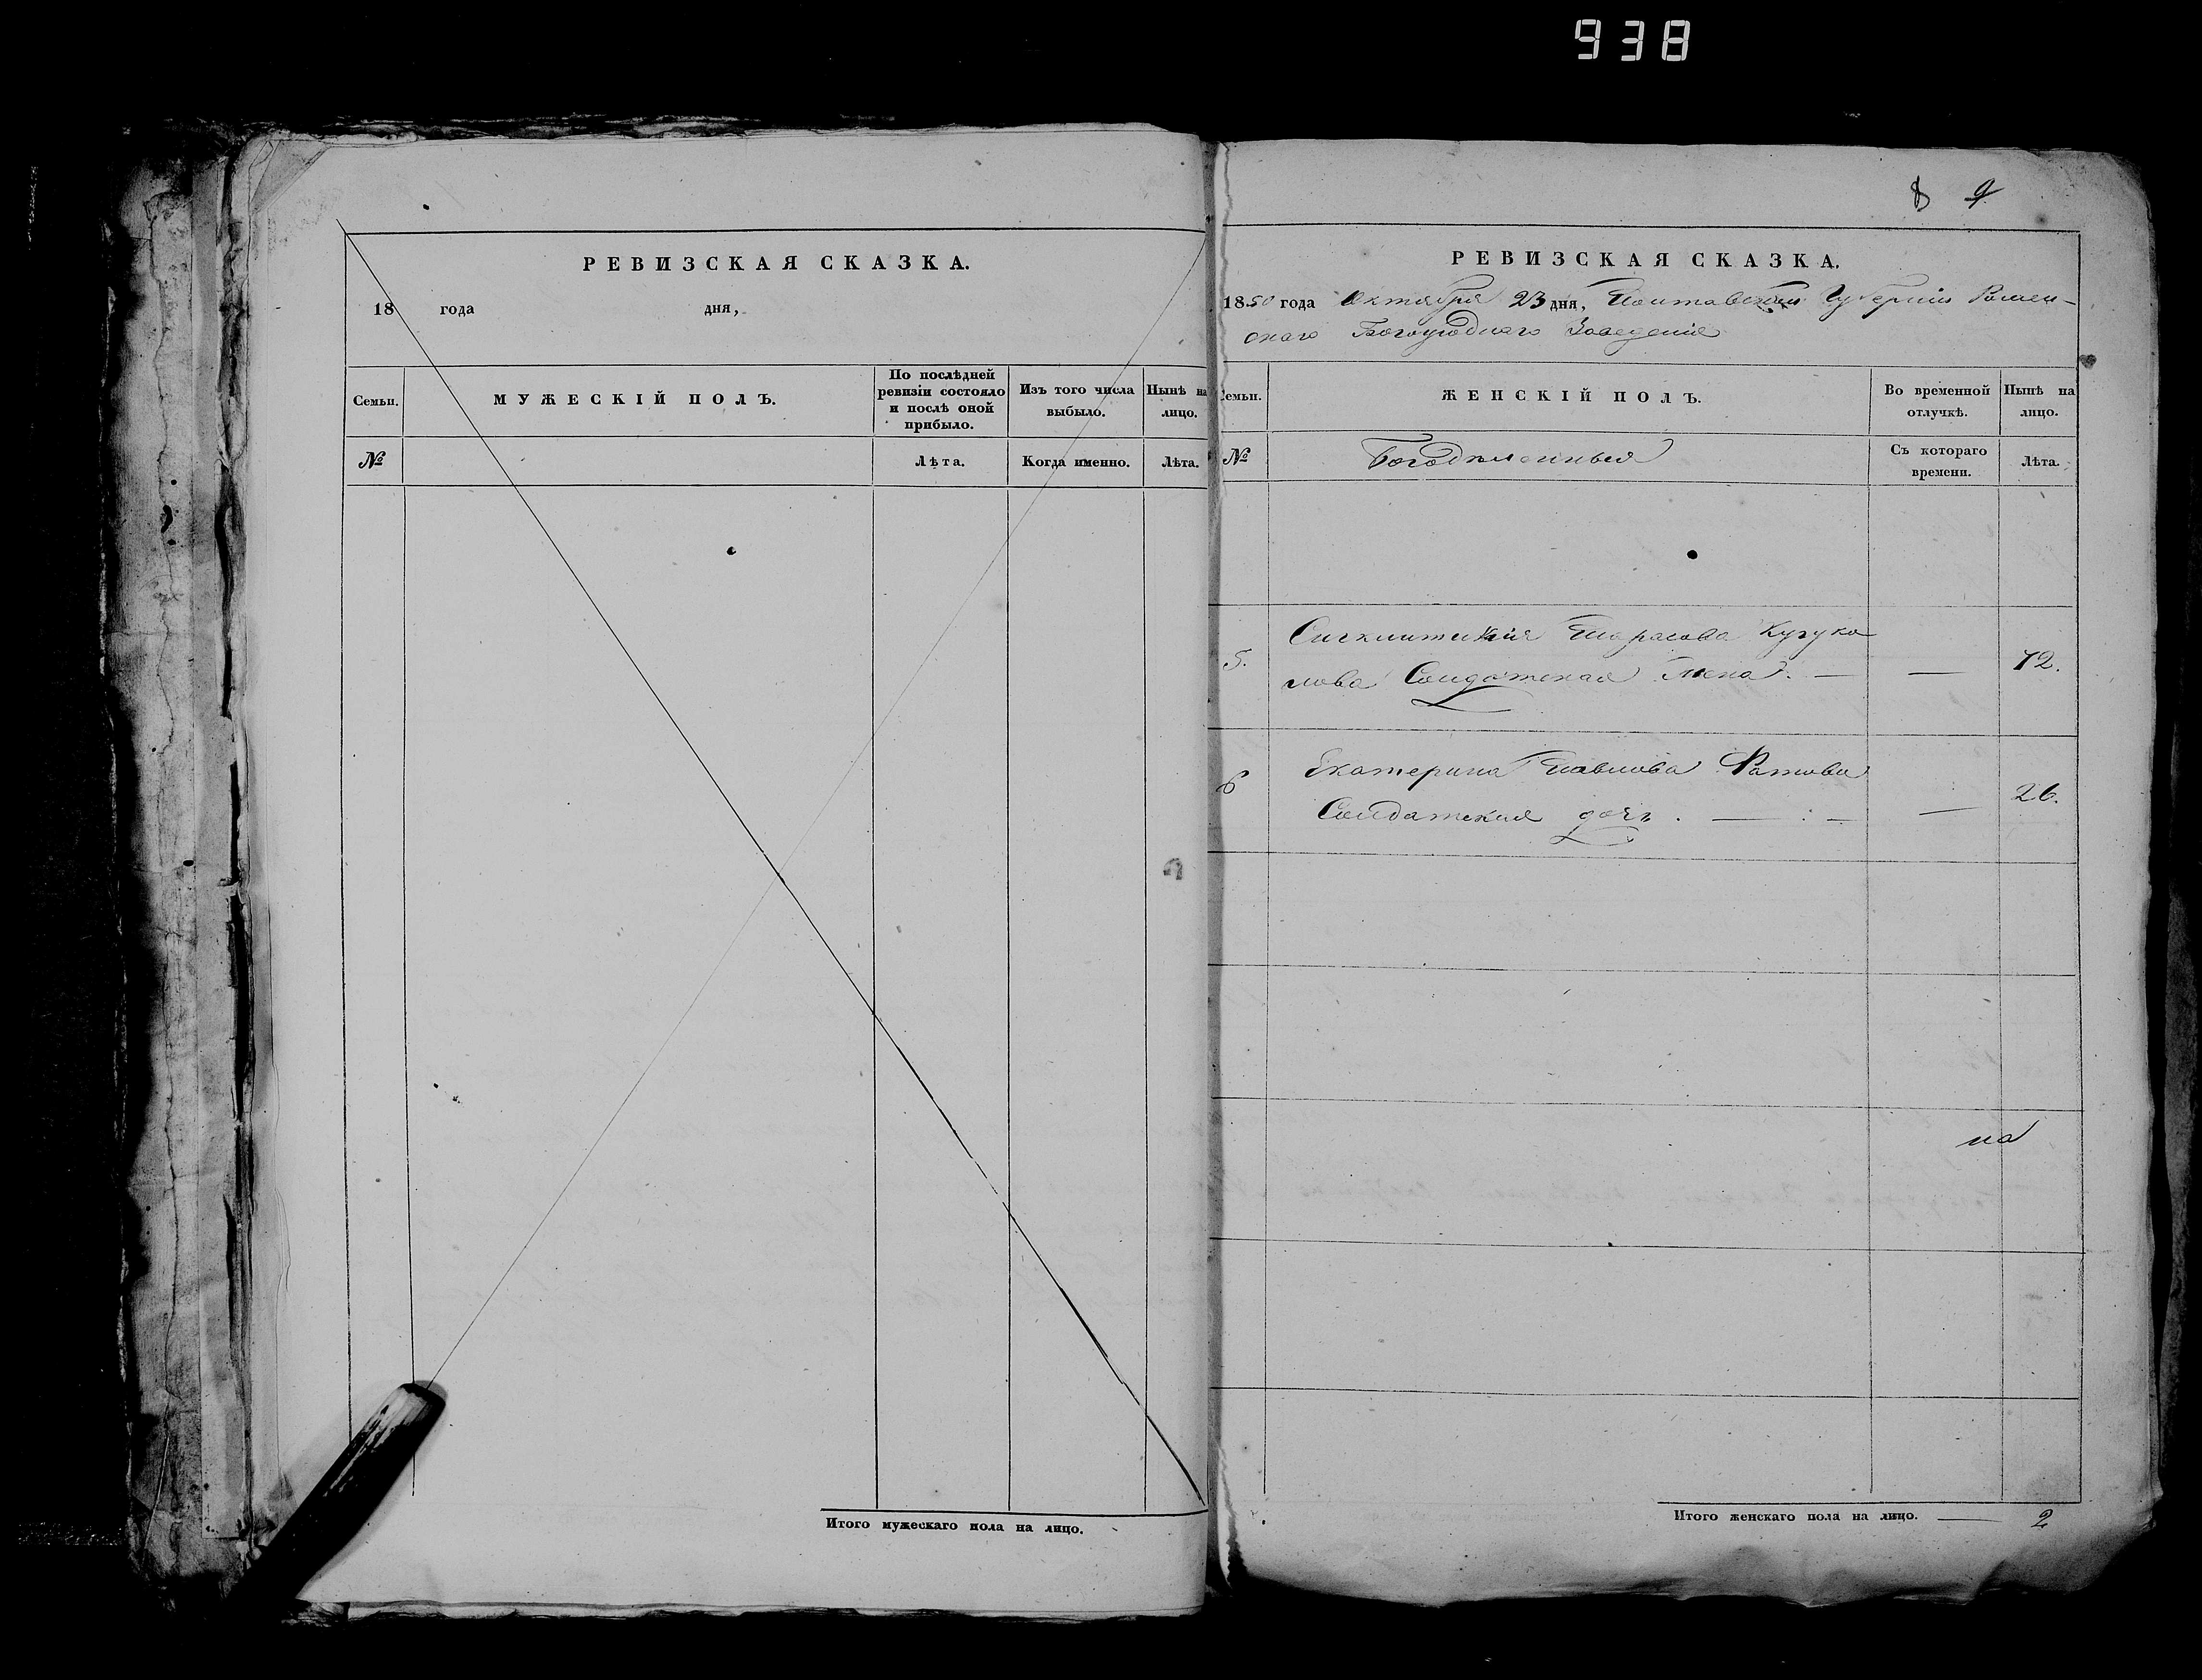 938
РЕВИЗСКАЯ СКАЗКА.
18 года дня,
Семьи.
МУЖЕСКІЙ ПОЛЪ.
По послѣдней
ревизіи состояло
и послѣ оной
прибыло.
Изъ того числа
выбыло.
Нынѣ на
лицо.
№
Лѣта.
Когда именно.
Лѣта.
Итого мужескаго пола на лицо.
8 9
РЕВИЗСКАЯ СКАЗКА.
1850 года Октября 23 дня, Полтавской Губерніи Ромен-
скаго Богоугоднаго Заведенія
Семьи.
ЖЕНСКІЙ ПОЛЪ.
Во временной
отлучкѣ.
Нынѣ на
лицо.
№
Богодѣленныя
Съ котораго
времени.
Лѣта.
5. Тарасова
лова Солдатская жена. — — 72.
6 Екатерина Павлова Фатова
Солдатская дочь. — : — — 26.
на
Итого женскаго пола на лицо. — 2